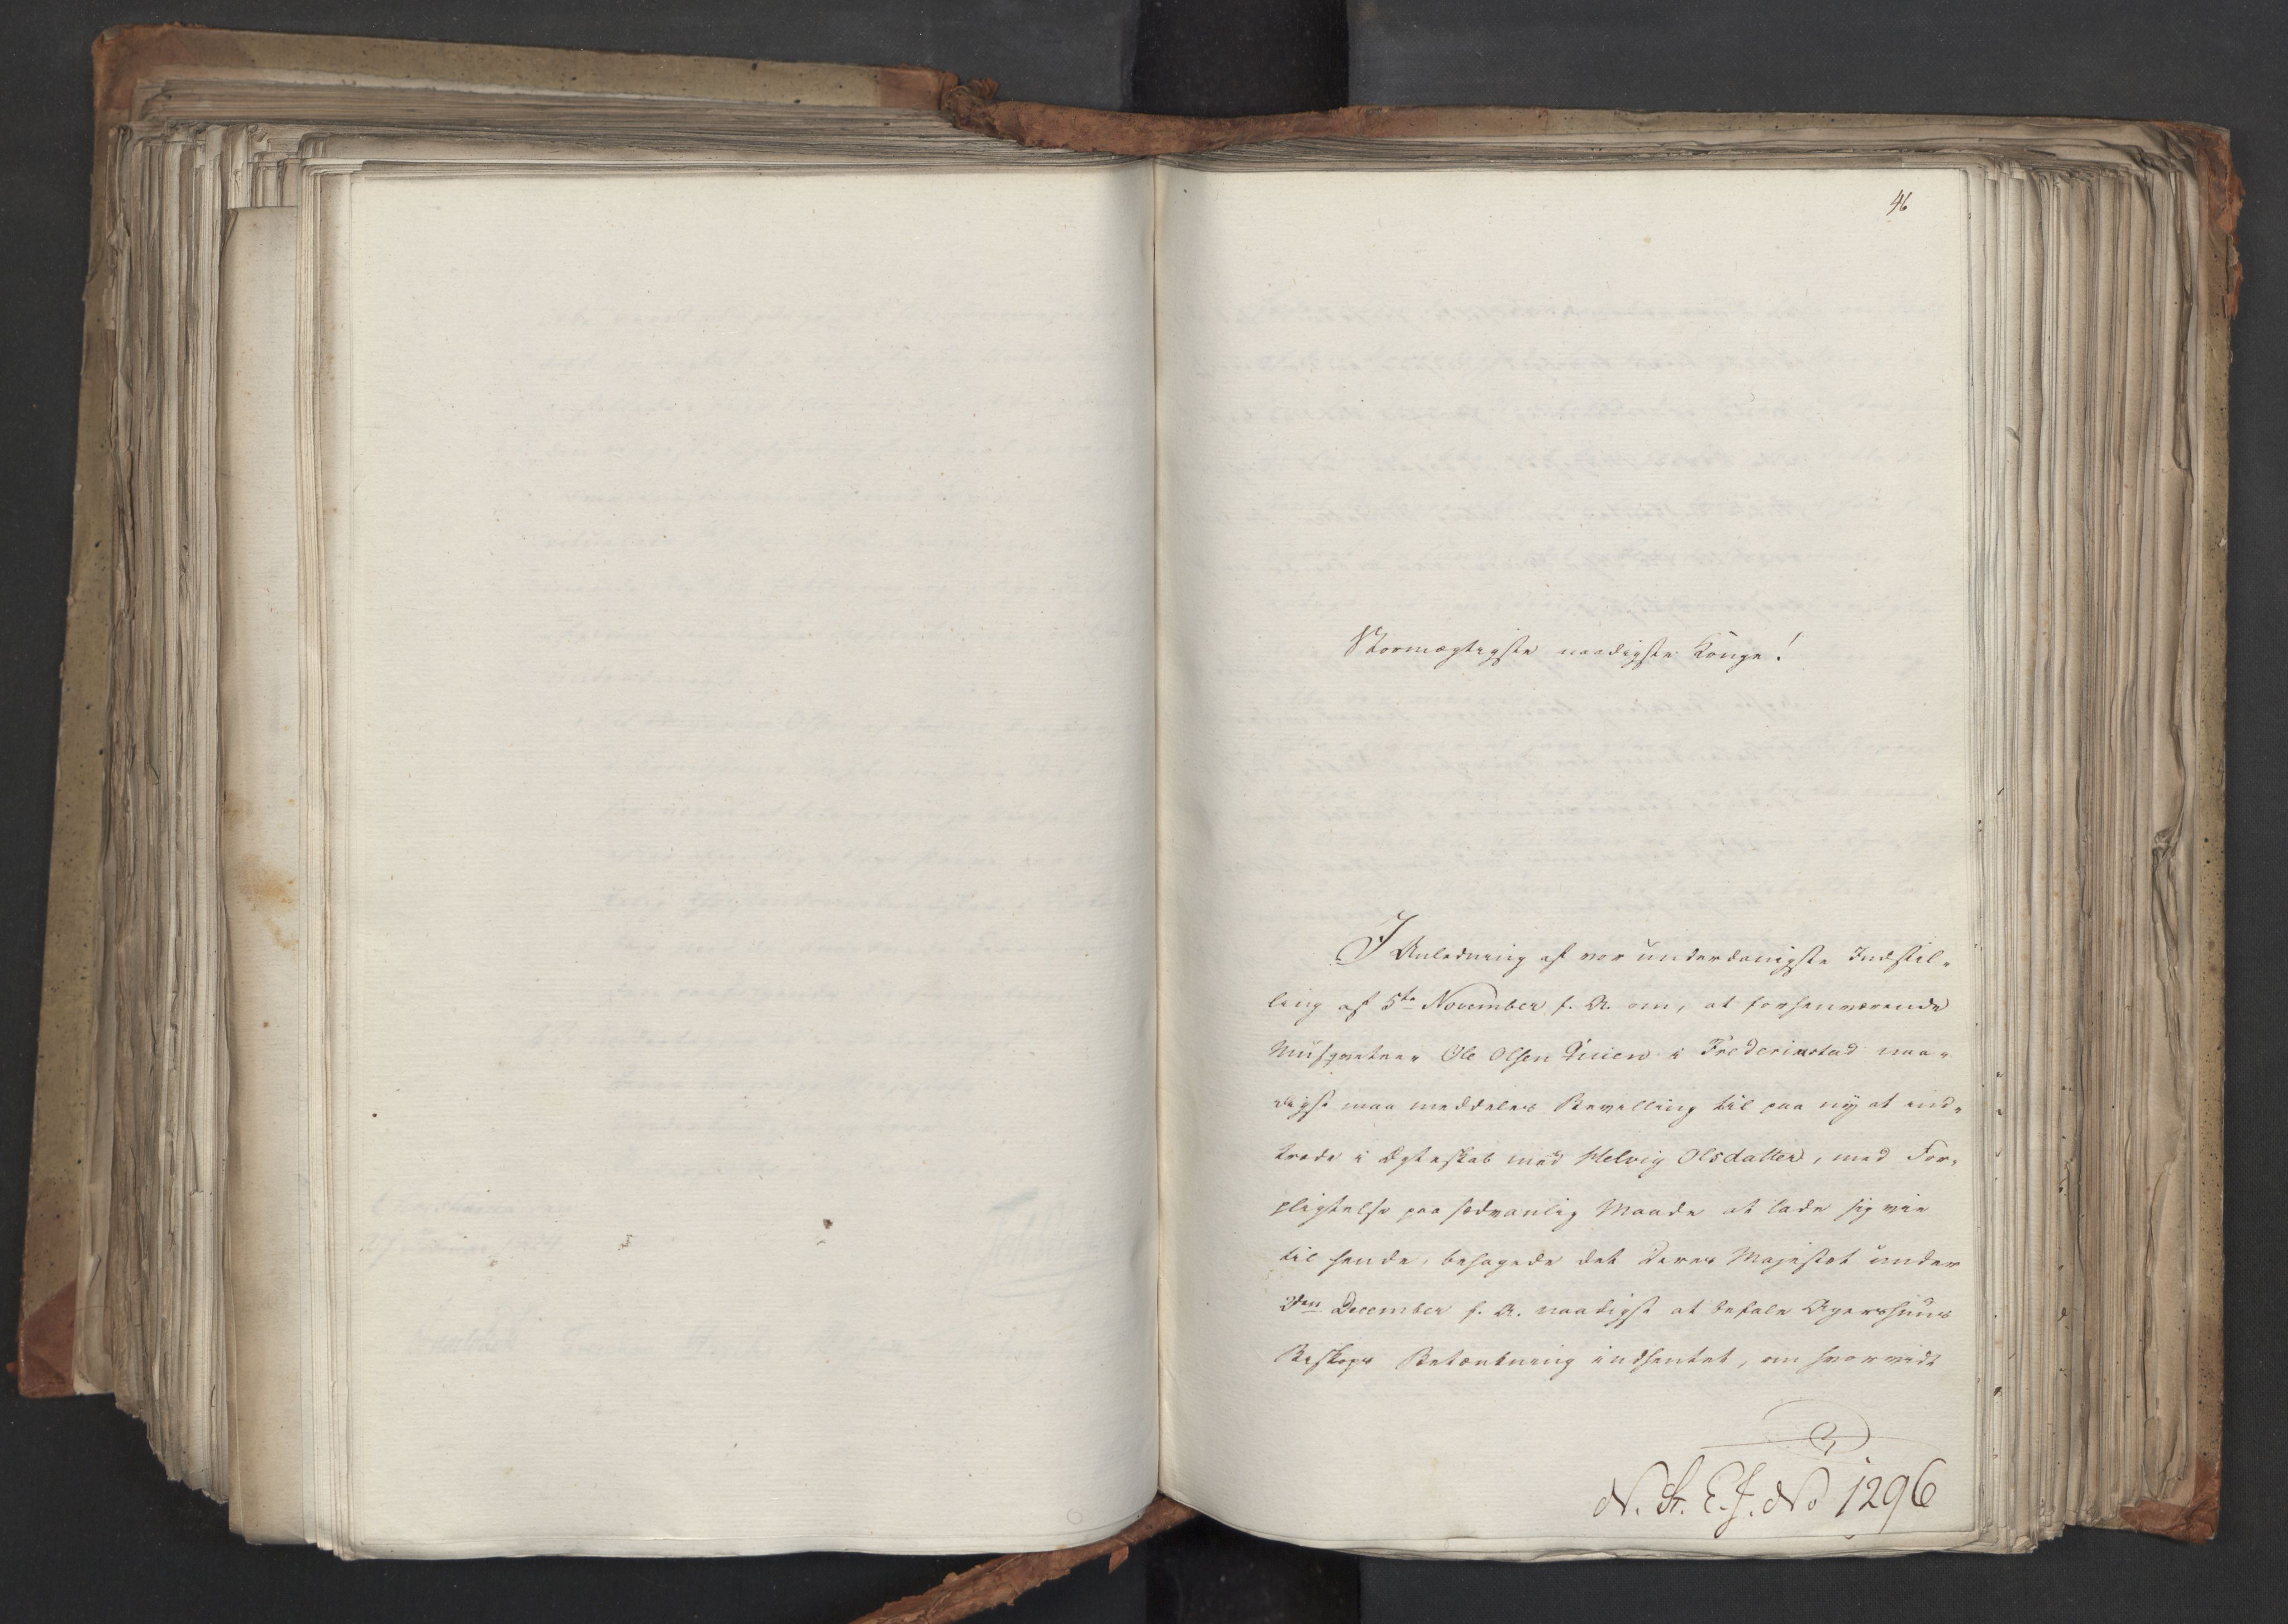 46
Stormægtigste naadigste Konge!
I Anledning af vor underdanigste Indstil-
ling af 5te November f. A. om, at forhenværende
Musqveteer Ole Olsen i Frederikstad naa-
digst maa meddeles Bevilling til paa ny at ind-
træde i Ægteskab med Helvig Olsdatter, med For-
pligtelse paa sædvanlig Maade at lade sig vie
til hende, behagede det Deres Majestet under
December f. A. naadigst at befale Agershuus
Biskops Betænkning indhentet, om hvorvidt
N. St. E. J. No 1296